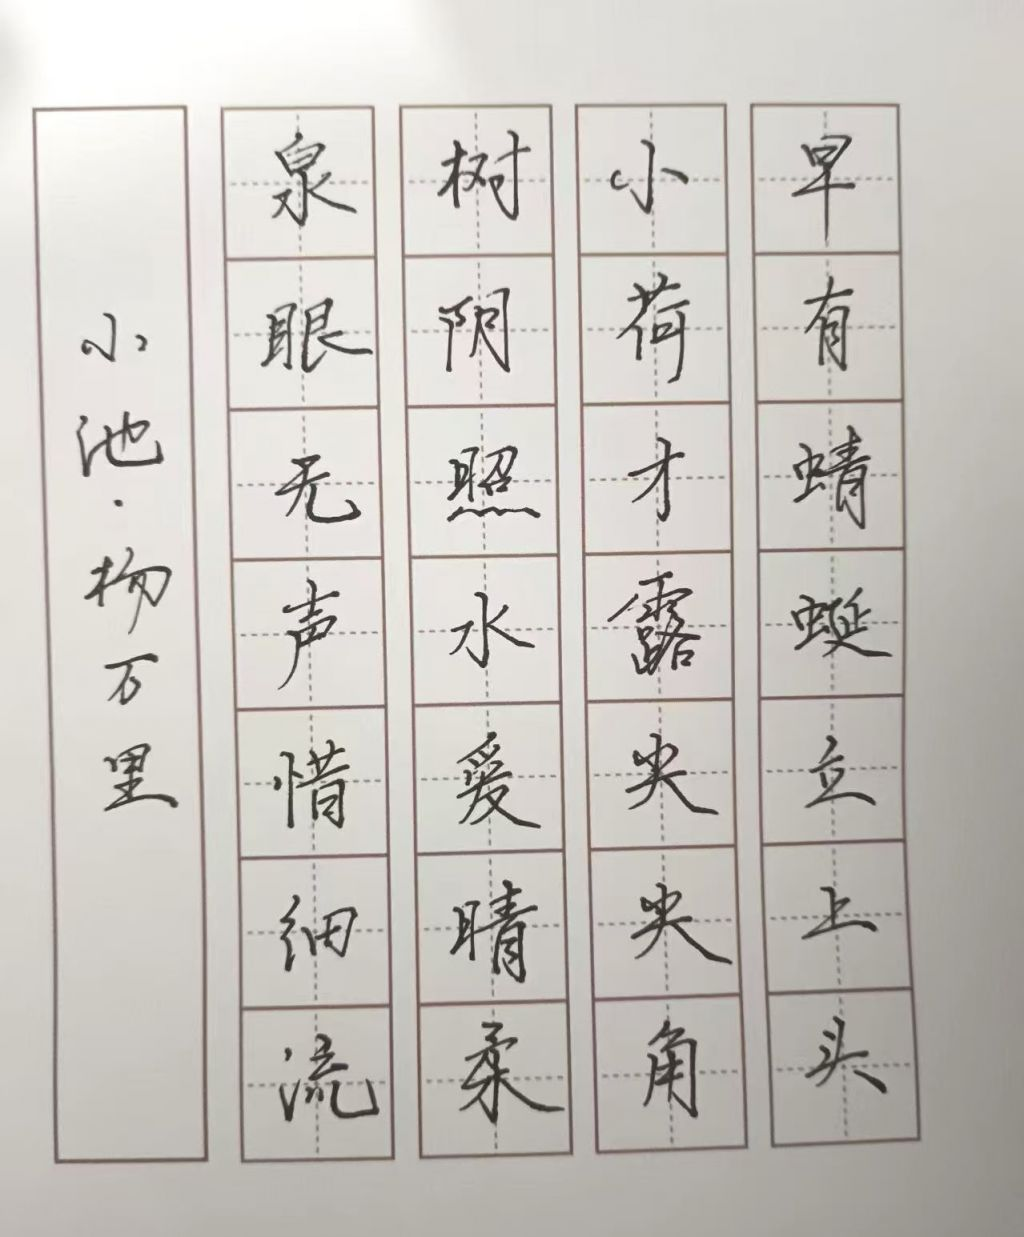 小池·杨万里
泉眼无声惜细流
树阴照水爱晴柔
小荷才露尖尖角
早有蜻蜓立上头